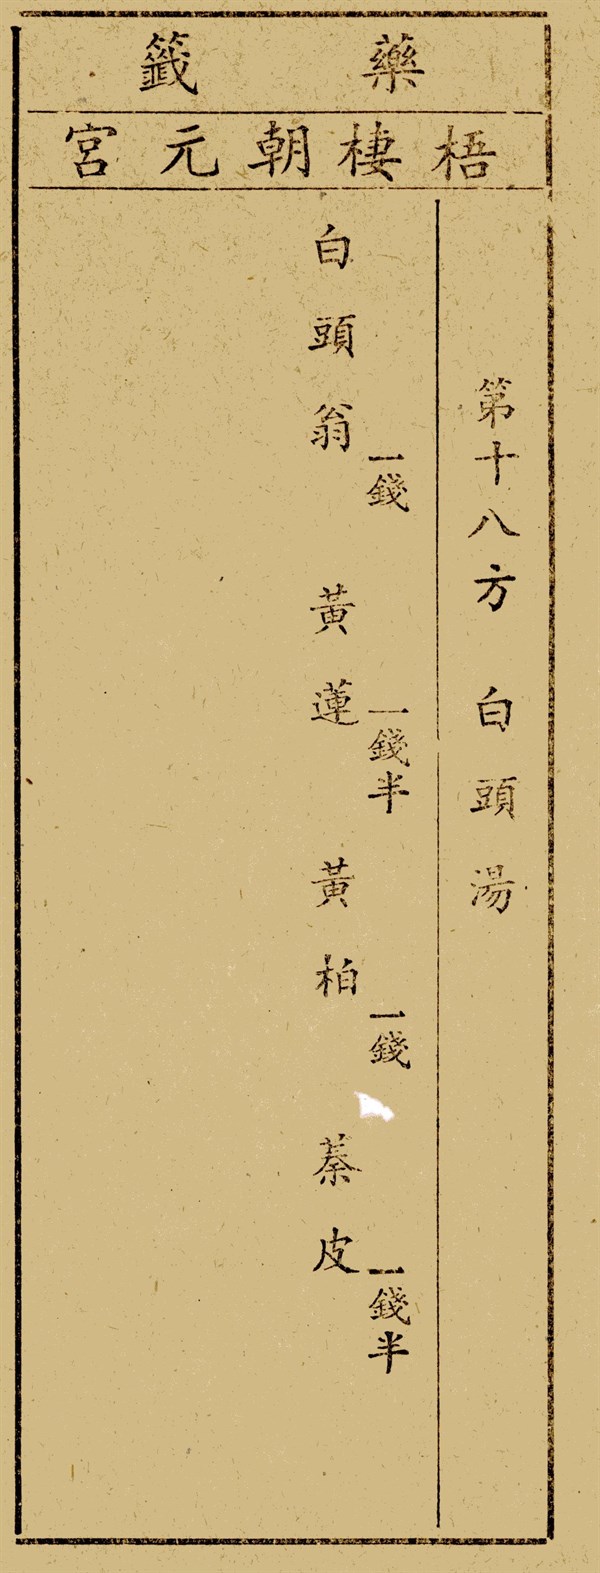 藥籤
梧棲朝元宮
第十八方 白頭湯
白頭翁 一錢 黃蓮 一錢半 黃柏 一錢 蓁皮 一錢半